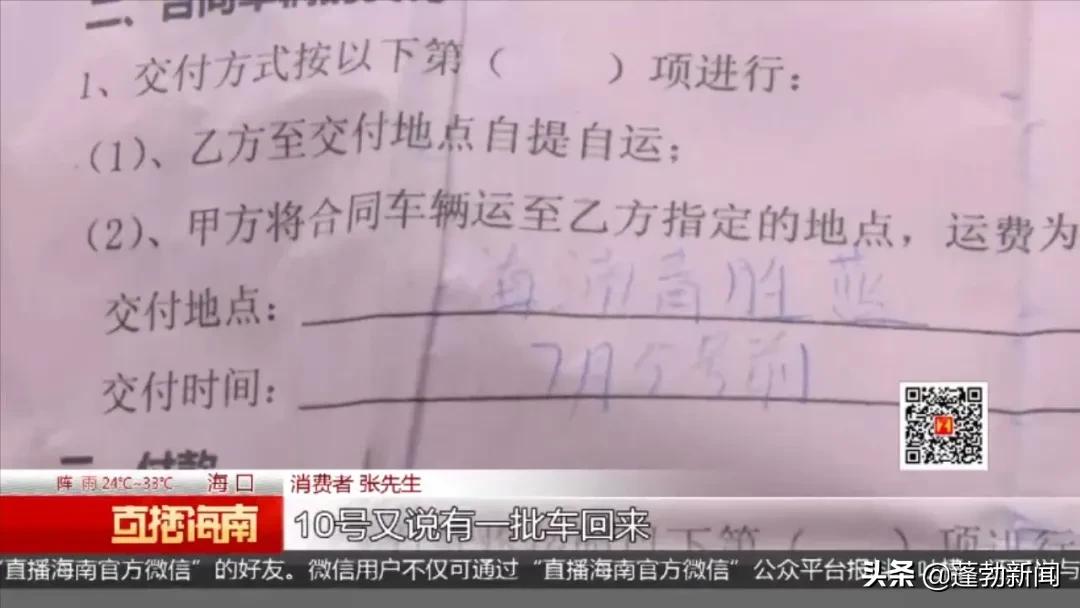 二、合同车辆的交付
1、交付方式按以下第（　　）项进行：
（1）、乙方至交付地点自提自运；
（2）、甲方将合同车辆运至乙方指定的地点，运费为
交付地点：海南高胜蓝
交付时间：7月5号前
三、付款
阵雨 24℃~33℃ 海口
消费者 张先生
直播海南
10号又说有一批车回来
下第（　　）项进行
“直播海南官方微信”的好友。微信用户不仅可通过“直播海南官方微信”公众平台报
头条 @蓬勃新闻